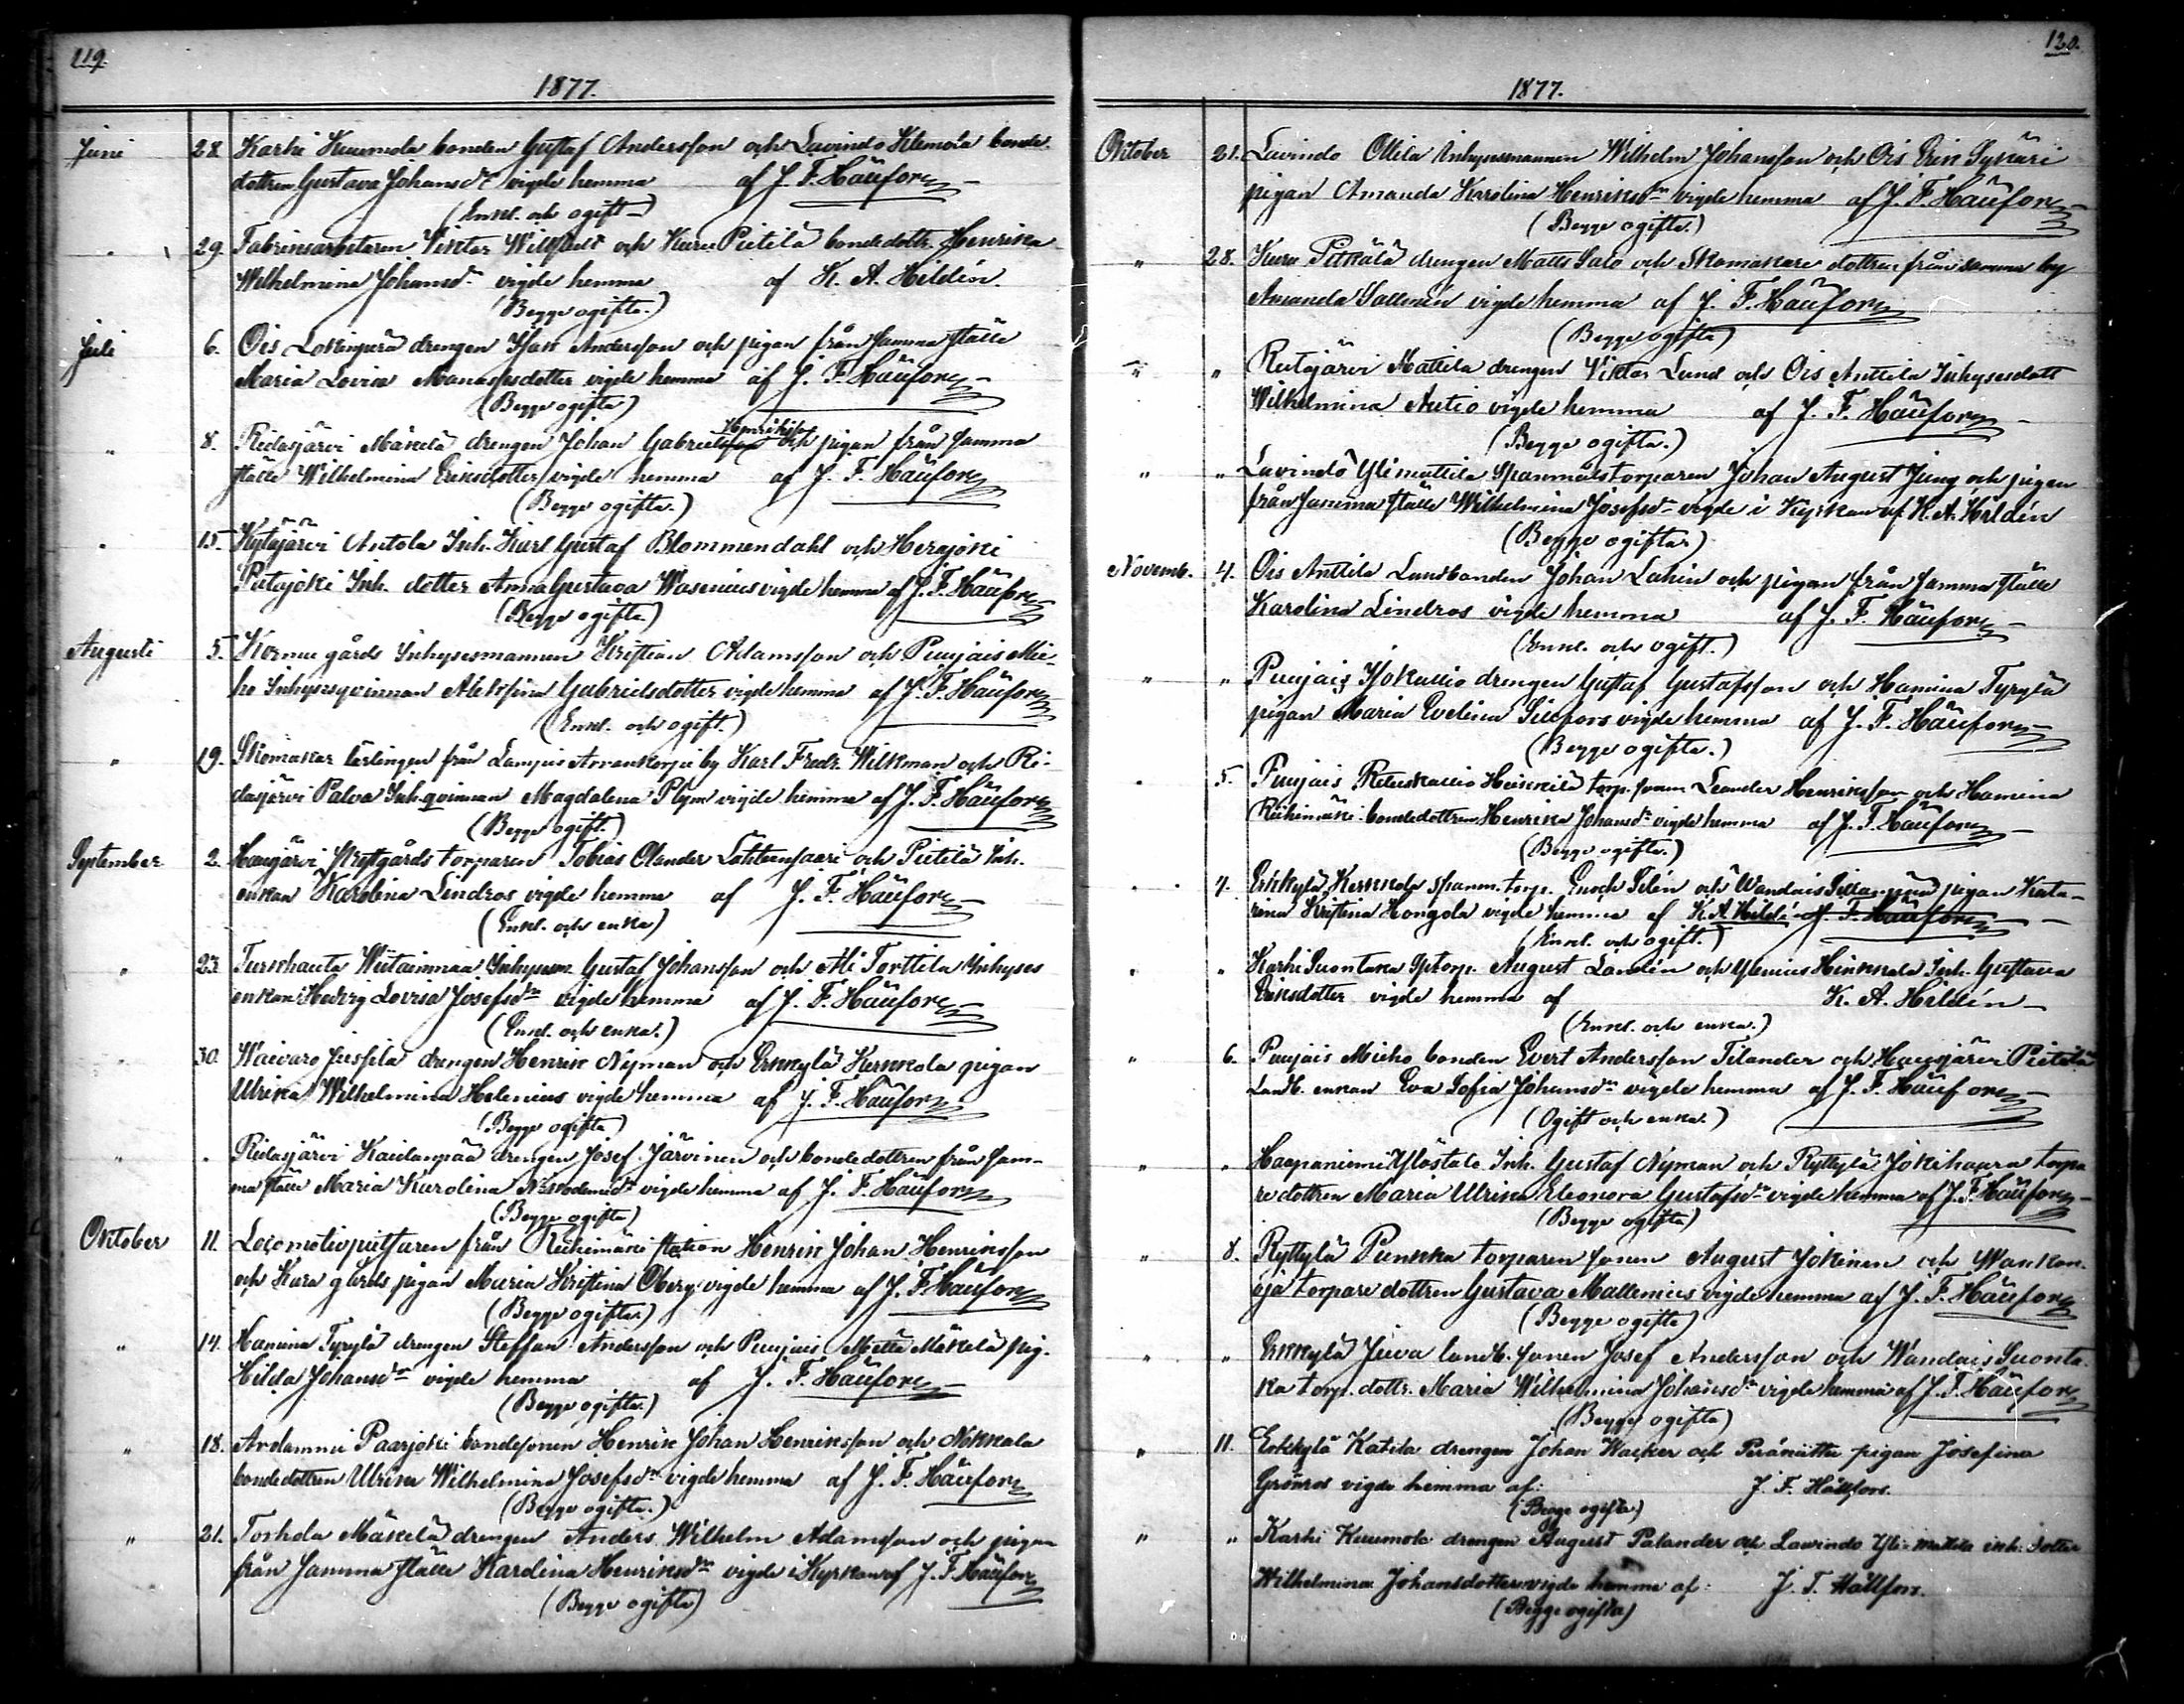 119.
1877.
Juni 28. Karhi Kuumola bonden Gustaf Andersson och Lavindo Klemola bonde-
dottren Gustava Johansdr vigde hemma af J. F. Hällfors
(Enkl. och ogift)
" 29. Fabriksarbetaren Viktor och Kuru Pietilä bondedottr. Henrika
Wilhelmina Johansdr vigde hemma af K. A. Hildén.
(Begge ogifta.)
Juli 6. Ois Lokinperä drengen Isak Andersson och pigan från samma ställe
Maria Lovisa Manassesdotter vigde hemma af J. F. Hällfors
(Begge ogifta)
" 8. Ridasjärvi Mäkelä drengen Johan Gabrielsson Henriksson och pigan från samma
ställe Wilhelmina Eriksdotter vigde hemma af J. F. Hällfors
(Begge ogifta.)
" 15. Kytäjärvi Antola Inh. Karl Gustaf Blommendahl och Herajoki
Pietajoki Inh. dotter Anna Gustava Wasenius vigde hemma af J. F. Hällfors
(Begge ogifta)
Augusti 5. Kormu gårds Inhysesmannen Kristian Adamsson och Puujais Mie-
ho Inhysesqvinnan Gabrielsdotter vigde hemma af J. F. Hällfors
(Enkl. och ogift.)
" 19. Skomakar lärlingen från Lampis by Karl Fredr. Wilkman och Ri-
dasjärvi Palva Inh.qvinnan Magdalena Plym vigde hemma af J. F. Hällfors
(Begge ogift.)
September 2. Hausjärvi torparen Tobias Olander Lähteensaari och Pietilä Inh.
enkan Karolina Lindros vigde hemma af J. F. Hällfors
(Enkl. och enka)
" 23. Turkhauta Wiitainmaa Inhysesm. Gustaf Johansson och Ali Torttila Inhyses
enkan Hedvig Lovisa Josefsdr vigde hemma af J. F. Hällfors
(Enkl. och enka.)
" 30. Waivaro Jussila drengen Henrik Nyman och Erkkylä Kerkkola pigan
Ulrika Wilhelmina Helenius vigde hemma af J. F. Hällfors
(Begge ogifta)
" " Ridasjärvi Kaidanpää drengen Josef Järvinen och bondedottren från sam-
ma ställe Maria Karolina Nikodemidr vigde hemma af J. F. Hällfors
(Begge ogifta)
Oktober 11. Locomotivputsaren från Riihimäki station Henrik Johan Henriksson
och Kara gårds pigan Maria Kristina Öberg vigde hemma af J. F. Hällfors
(Begge ogifta.)
" 14. Hamina Tyrylä drengen Steffan Andersson och Puujais Mäkelä pig.
Hilda Johansdr vigde hemma af J. F. Hällfors
(Begge ogifta.)
" 18. Arolammi Paarjoki bondesonen Henrik Johan Henriksson och Nokkala
bondedottren Ulrika Wilhelmina Josefsdr vigde hemma af J. F. Hällfors
(Begge ogifta.)
" 21. Torhola Mäkelä drengen Anders Wilhelm Adamsson och pigan
från samma ställe Karolina Henriksdr vigde i Kyrkan af J. F. Hällfors
(Begge ogifta)
120.
1877.
Oktober 21. Lavindo Ollila Inhysesmannen Wilhelm Johansson och Ois Erik Sykäri
pigan Amanda Karolina Henriksdr vigde hemma af J. F. Hällfors
(Begge ogifta.)
" 28. Kuru Pitkälä drengen Matts Salo och Skomakare dottren från samma by
Amanda Sallmén vigde hemma af J. F. Hällfors
(Begge ogifta)
" " Rutajärvi Mattila drengen Viktor Lund och Ois Anttila Inhysesdott
Wilhelmina Autio vigde hemma af J. F. Hällfors
(Begge ogifta.)
" " Lavindö Ylimattila Spanmålstorparen Johan August Jung och pigan
från samma ställe Wilhelmina Josefsdr vigde i Kyrkan af K. A. Hildén
(Begge ogifta)
Novemb. 4. Ois Anttila Landbonden Johan Lahin och pigan från samma ställe
Karolina Lindros vigde hemma af J. F. Hällfors
(Enkl. och ogift.)
" " Puujais Isokallio drengen Gustaf Gustafsson och Hamina Tyrylä
pigan Maria Evelina Silfors vigde hemma af J. F. Hällfors
(Begge ogifta.)
" 5. Puujais Heikkilä torp. sonen Leander Henriksson och Hamina
Riihimäki bondedottren Henrika Johansdr vigde hemma af J. F. Hällfors
(Begge ogifta.)
" 4. Erkkylä Kerkkola Spanm. torp. Enoch Tilén och Wandais pigan Kata-
rina Kristina Hongola vigde hemma af K. A. Hildén af J. F. Hällfors
(Enkl. och ogift.)
" " Karhi Suontaka Sptorp. August Landén och Ylenius Hinkkala Inh. Gustava
Eriksdotter vigde hemma af K. A. Hildén
(Enkl. och enka.)
" 6. Puujais Mieho bonden Evert Andersson Tilander och Hausjärvi Pietilä
Landb. enkan Eva Sofia Johansdr vigde hemma af J. F. Hällfors
(Ogift och enka.)
" " Haapaniemi Ylöstalo Inh. Gustaf Nyman och Ryttylä Jokihaara torpa
re dottren Maria Ulrika Eleonora Gustafsdr vigde hemma af J. F. Hällfors
(Begge ogifta)
" 8. Ryttylä Punkka torparen sonen August Jokinen och Wankan-
oja torpare dottren Gustava Mallenius vigde hemma af J. F. Hällfors
(Begge ogifta)
" " Erkkylä Juva landb. sonen Josef Andersson och Wandais Suonta-
ka torp. dottr. Maria Wilhelmina Johansdr vigde hemma af J. F. Hällfors
(Begge ogifta)
" 11. Erkkylä Katila drengen Johan Wacker och pigan Josefina
Grönros vigde hemma af: J. F. Hällfors.
(Begge ogifta)
" " Karhi Kuumola drengen August Palander och Lavindo Yli-Mattila inh. dotter
Wilhelmina Johansdotter vigde hemma af: J. F. Hällfors.
(Begge ogifta)